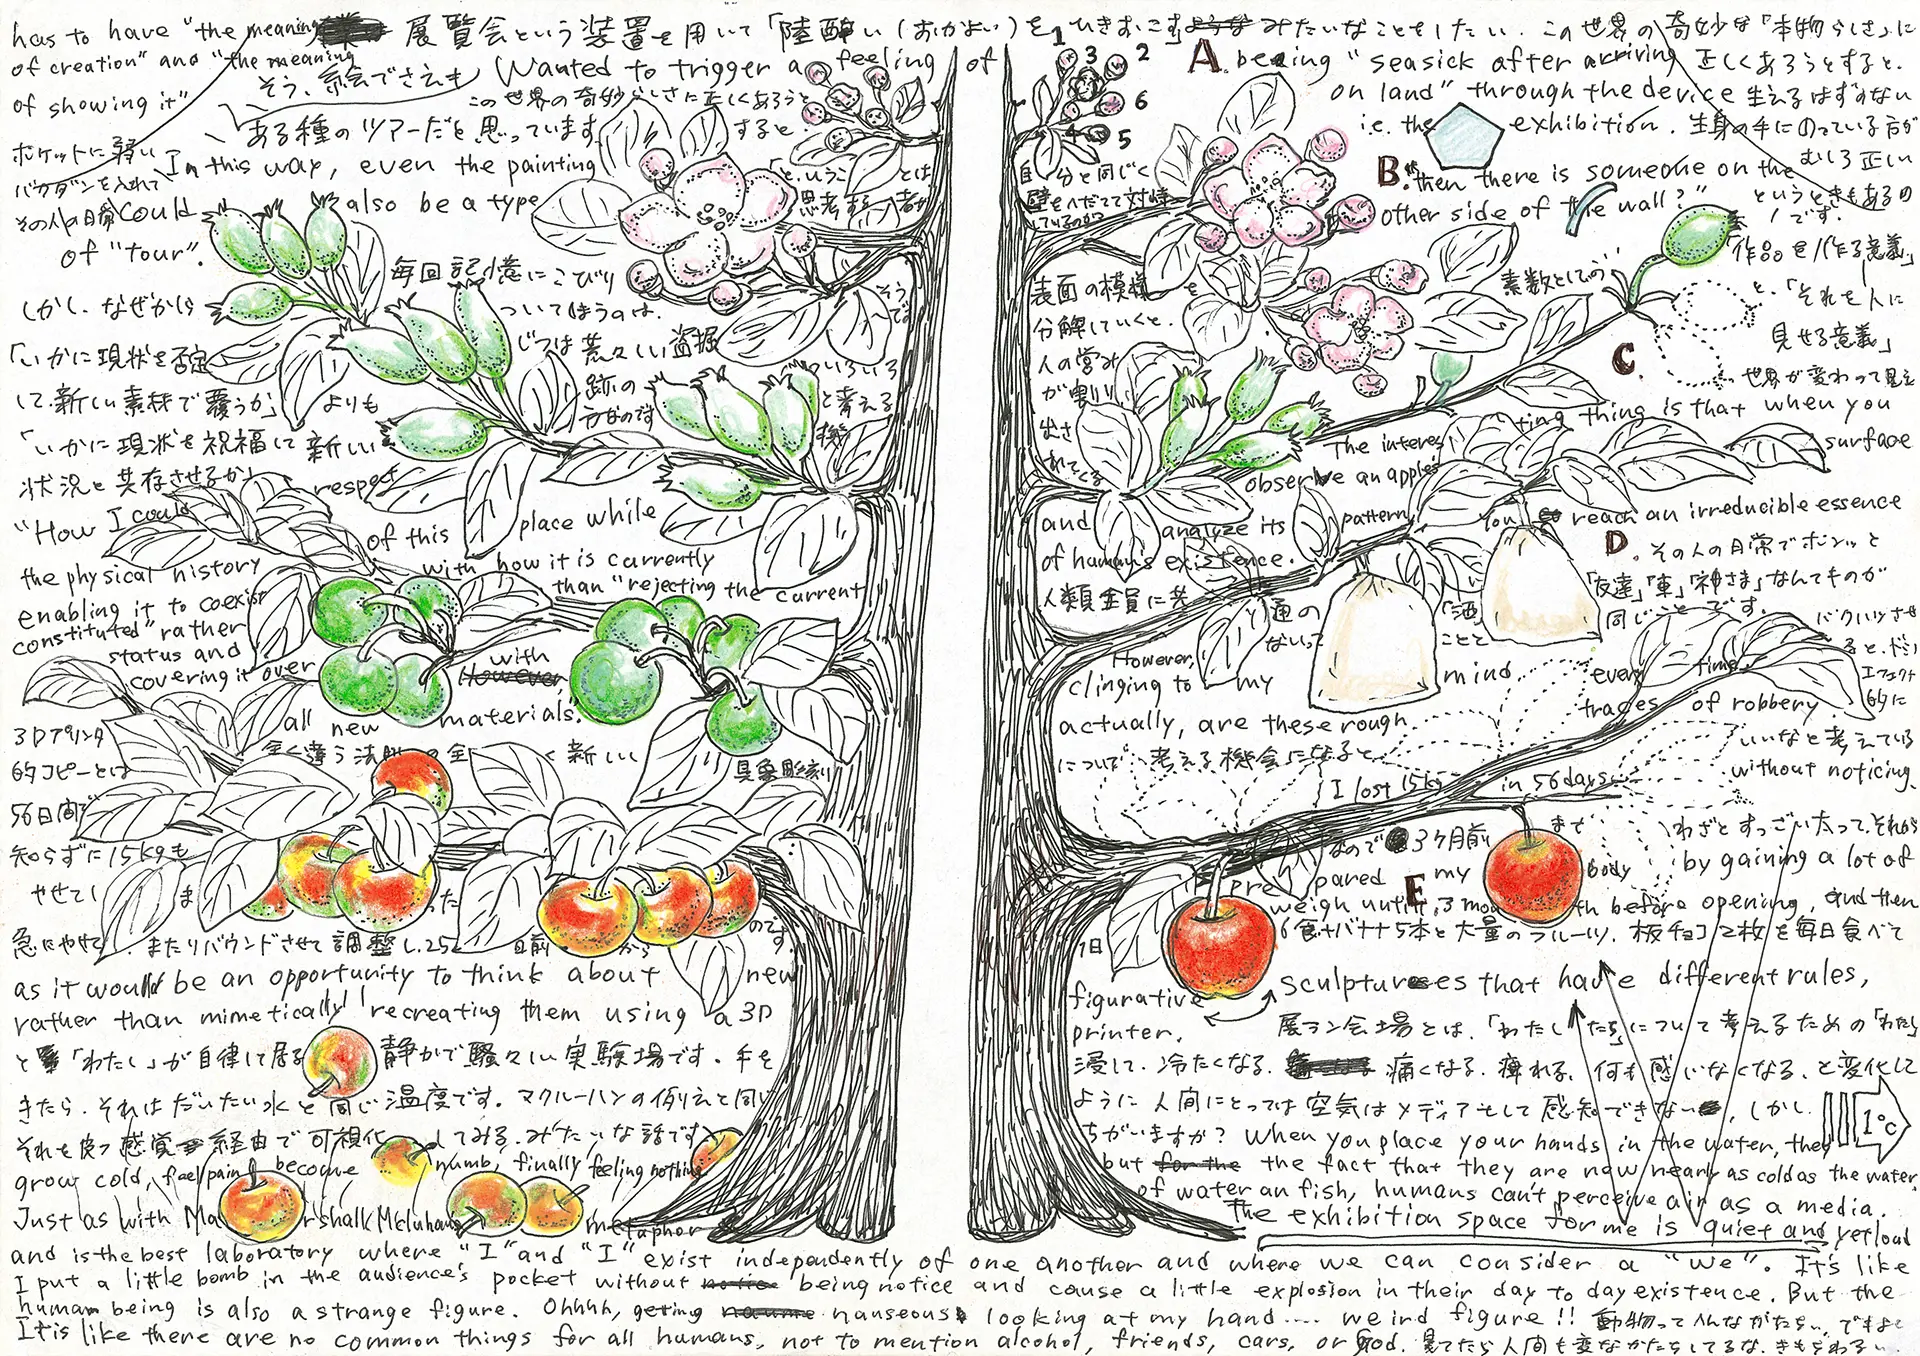 has to have "the meaning 展覧会という装置を用いて「陸酔い(おかよい)を、ひきおこす」みたいなことをしたい. この世界の奇妙な「本物らしさ」に
of creation" and "the meaning
of showing it"
そう、絵でさえも
Wanted to trigger a feeling of
1
3
2
6
4
5
A. beeing "seasick after arriving 正しくあろうとすると、
この世界の奇妙らしさに正しくあろうと
すると、
on land" through the device 生えるはずのない
ある種のツアーだと思っています
i.e. the exhibition. 生身の手にのっている方が
ポケットに弱い
バクダンを入れて
その人の日常
In this way, even the painting
could also be a type
of "tour".
自分と同じく
壁をへだてて対峙
しているのか?
B. "then there is someone on the むしろ正しい
other side of the wall?" というときもあるの
です.
毎回記憶にこびり
ついてしまうのは.
じつは荒々しい盗掘
跡の
ほうなのです
いろいろ
と考える
機
表面の模様を
分解していくと.
人の営み
が割り
出さ
れてくる
素数としての
「作品を作る意義」
と、「それを人に
見せる意義」
C.
世界が変わって見え
しかし、なぜかしら
「いかに現状を否定
して.新しい素材で覆うか」よりも
「いかに現状を祝福して新しい
状況と共存させるか」
The interes ting thing is that when you
observe an apple's surface
respect
"How I could
of this place while
the physical history with how it is currently
enabling it to coexist than "rejecting the current
constituted" rather
status and
covering it over
with
all new materials".
and analyze its pattern, You reach an irreducible essence
of human's existence.
D. その人の日常でポンッと
人類全員に共通の「酒」「友達」「車」「神さま」なんてものが
ないって ことと 同じことです。
バクハツさせ
ると、ドミノ
エフェクト
的に
However,
clinging to my mind every time
actually, are these rough traces of robbery
について考える機会になると、
いいなと考えている
without noticing.
3Dプリンタ
的コピーとは
全く違う法則の全く新しい
具象彫刻
56日間で
知らずに15kgも
やせてしま った
I lost 15kg in 56days.
なので3ヶ月前まで
わざとすっごい太って.それから
prepared my body by gaining a lot of
E
weigh until 3 month before opening, and then
急にやせて、またリバウンドさせて調整し.25 日前から のです.
1日6食+バナナ5本と大量のフルーツ. 板チョコ2枚を毎日食べて
as it would be an opportunity to think about new
figurative sculptures that have different rules,
rather than mimetically recreating them using a 3D
printer.
展ラン会場とは、「わたしたち」について考えるための「わたし」
と「わたし」が自律して居る静かで騒々しい実験場です. 手を
浸して、冷たくなる. 痛くなる. 痺れる、何も感じなくなる、と変化して
きたら、それはだいたい水と同じ温度です. マクルーハンの例えと同じ
ように人間にとっては空気はメディアとして感知できない, しかし.
それを皮ふ感覚経由で可視化してみる.みたいな話です
ちがいますか? When you place your hands in the water, they
1℃
grow cold, feel pain, become numb, finally feeling nothing
but for the the fact that they are now nearly as cold as the water.
Just as with Marshall McLuhan's metaphor
of water an fish, humans can't perceive air as a media.
The exhibition space for me is quiet and yet loud
and is the best laboratory where "I" and "I" exist independently of one another and where we can consider a "we". It's like
I put a little bomb in the audience's pocket without notice being notice and cause a little explosion in their day to day existence. But the
human being is also a strange figure. Ohhhh, getting nauseous looking at my hand.... weird figure!! 動物ってへんながたち、ですよ
It is like there are no common things for all humans, not to mention alcohol, friends, cars, or God. 見てたら人間も変なかたちしてるな.きもちわるい.